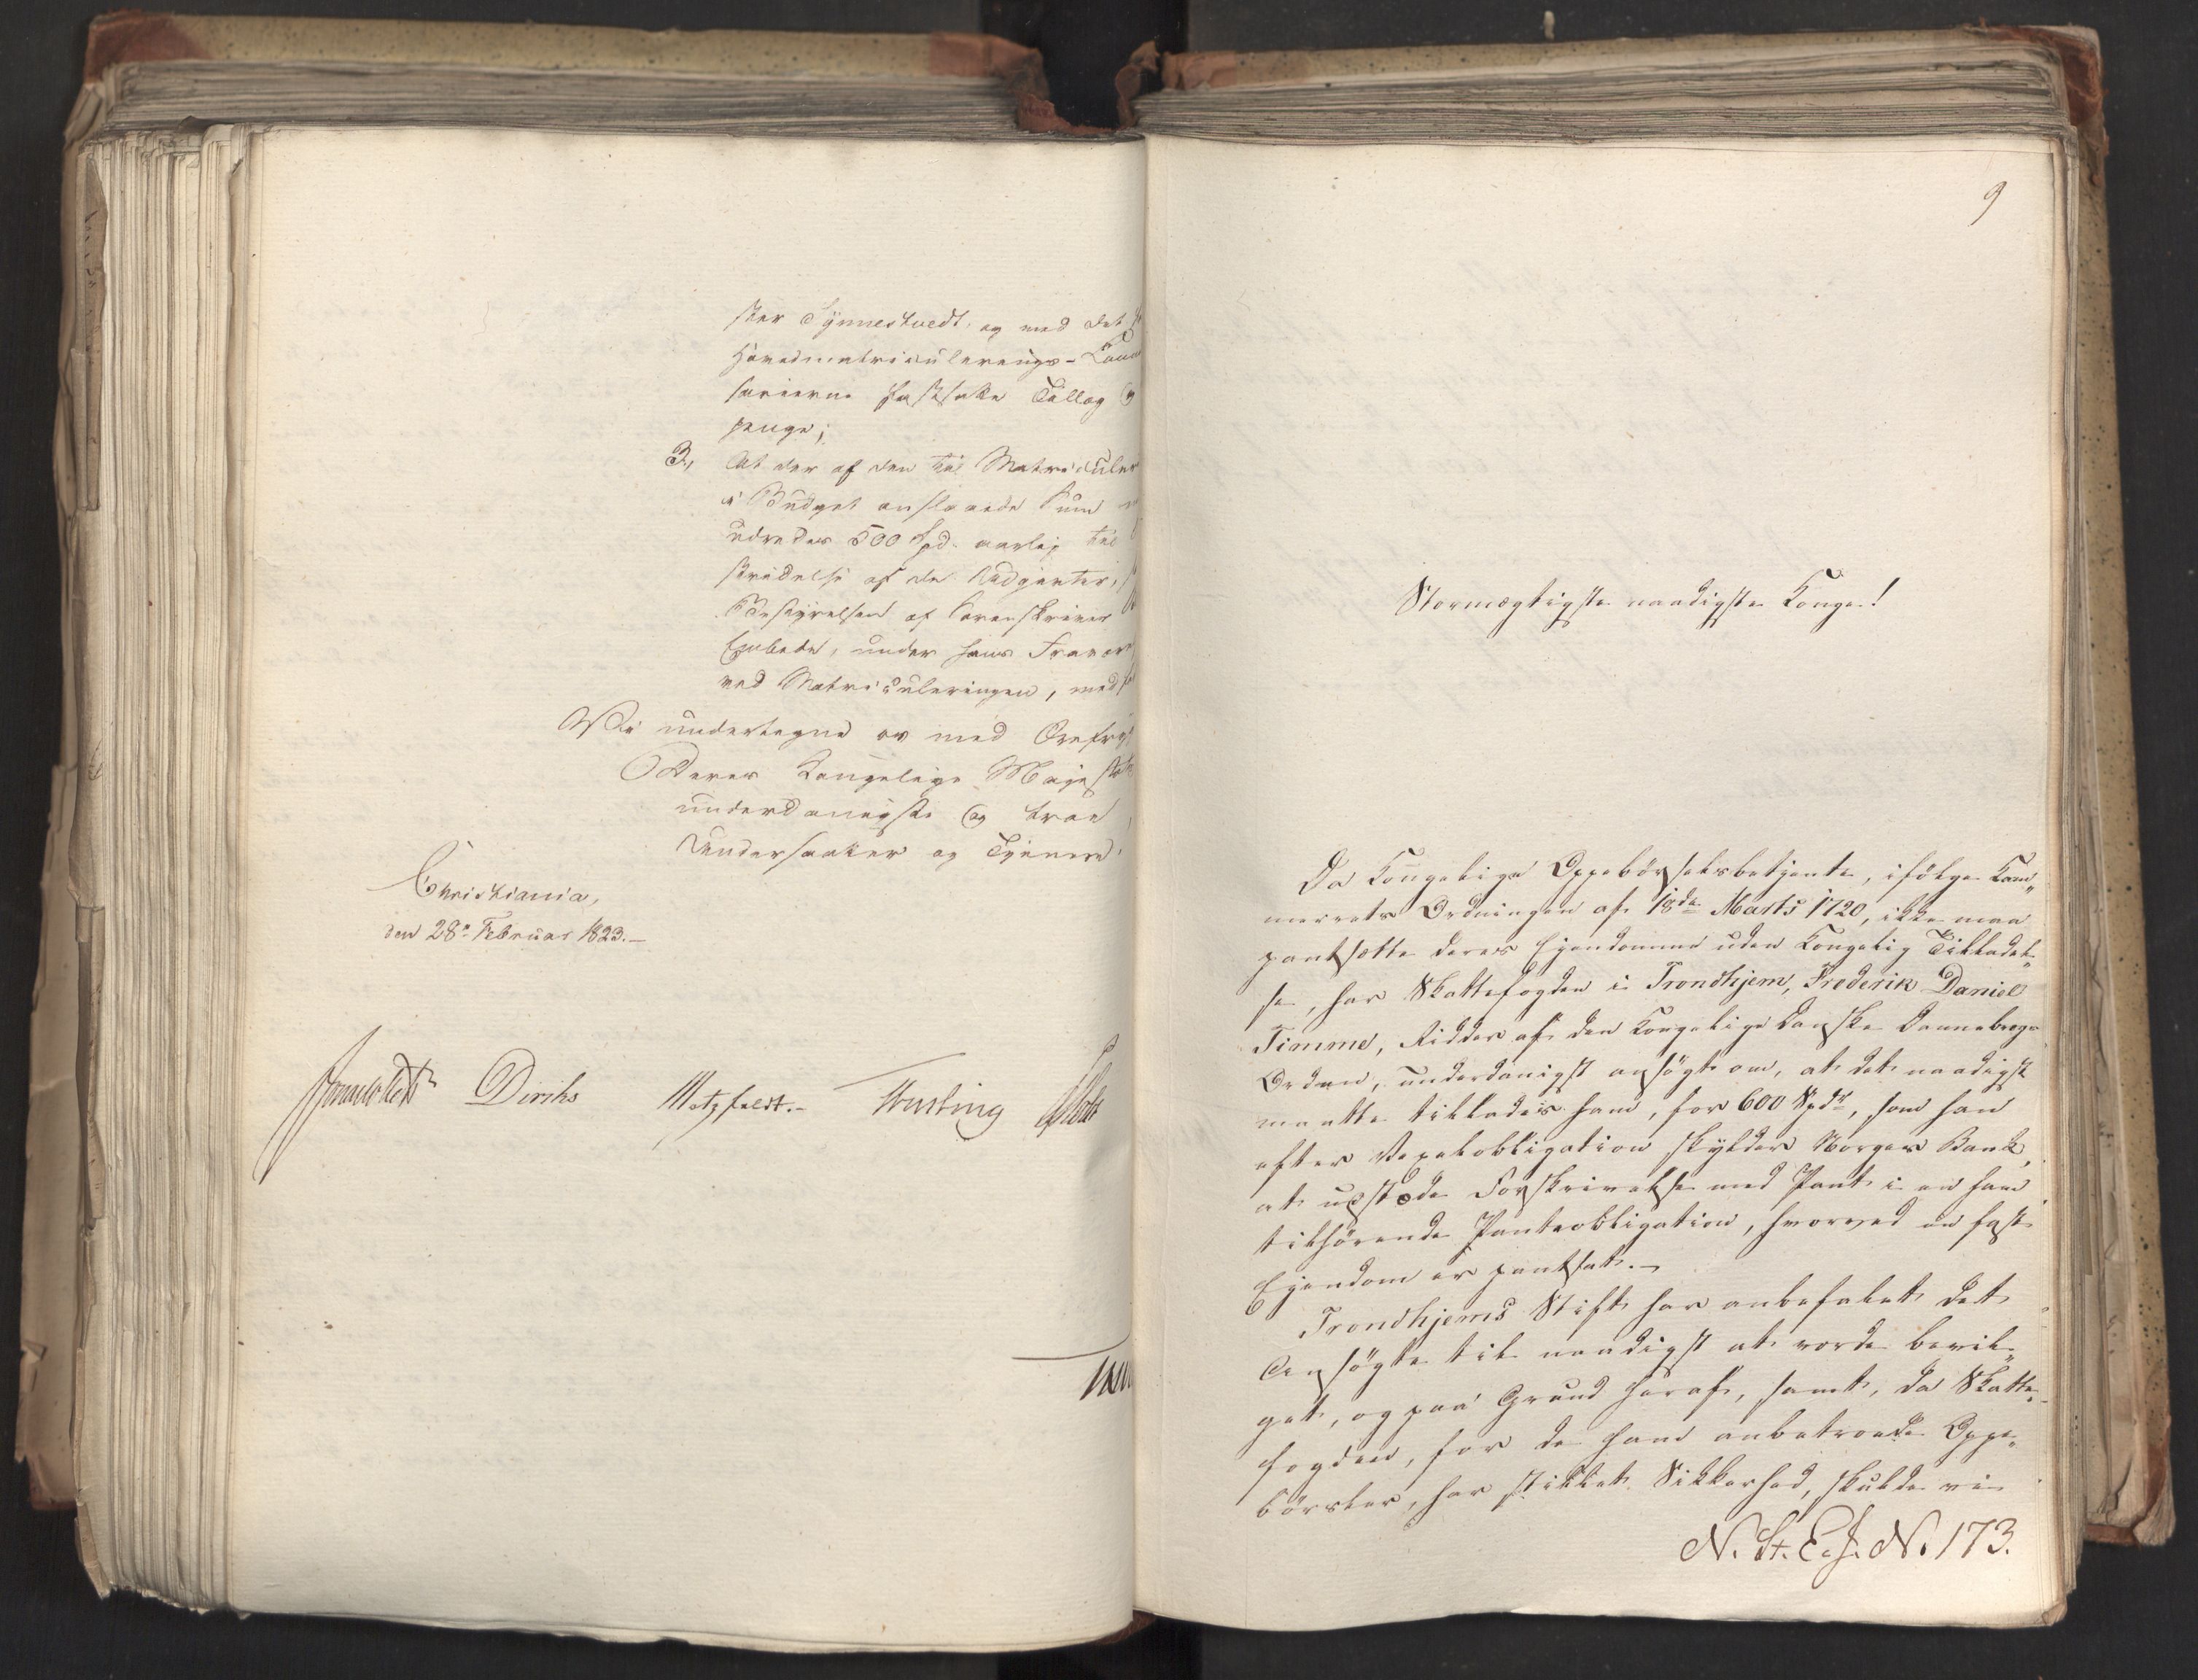 ster Synnestvedt, og med det
Hovedmatriculerings-Com
sairerne fastsatte Tillæg
penge;
3, At der af den til Matriculer
i Budget anslaaede Sum
udredes 500 Spd. aarlig til
stridelse af de Udgivter,
Bestyrelsen af Sorenskriver
Embede, under hans Fravær
ved Matriculeringen, med
Vi undertegne os med Ærefryg
Deres Kongelige Majestæt
underdanigste og troe
Undersaatter og Tjenere.
Christiania,
den 28de Februar 1823.-
Diriks Motzfeldt.-
9
Stormægtigste naadigste Konge!
Da Kongelige Oppebørselsbetjente, ifølge Kam„
merrets Ordningen af 18de Marts 1720, ikke maa
pantsætte deres Ejendomme uden Kongelig Tilladel„
se, har Skattefogden i Trondhjem, Frederik Daniel
Timme, Ridder af den Kongelige Danske Dannebrogs
Orden, underdanigst ansøgt om, at det naadigst
maatte tillades ham, for 600 Spdr, som han
efter Vexelobligation skylder Norges Bank,
at udstæde Forskrivelse med Pant i en ham
tilhørende Panteobligation, hvorved en fast
Ejendom er pantsat.-
Trondhjems Stift har anbefalet det
Ansøgte til naadigst at vorde bevil„
get, og paa Grund heraf, samt, da Skatte„
fogden, for de ham anbetroede Oppe„
børsler, har stillet Sikkerhed, skulde vi
N. St. E. J. N. 173.